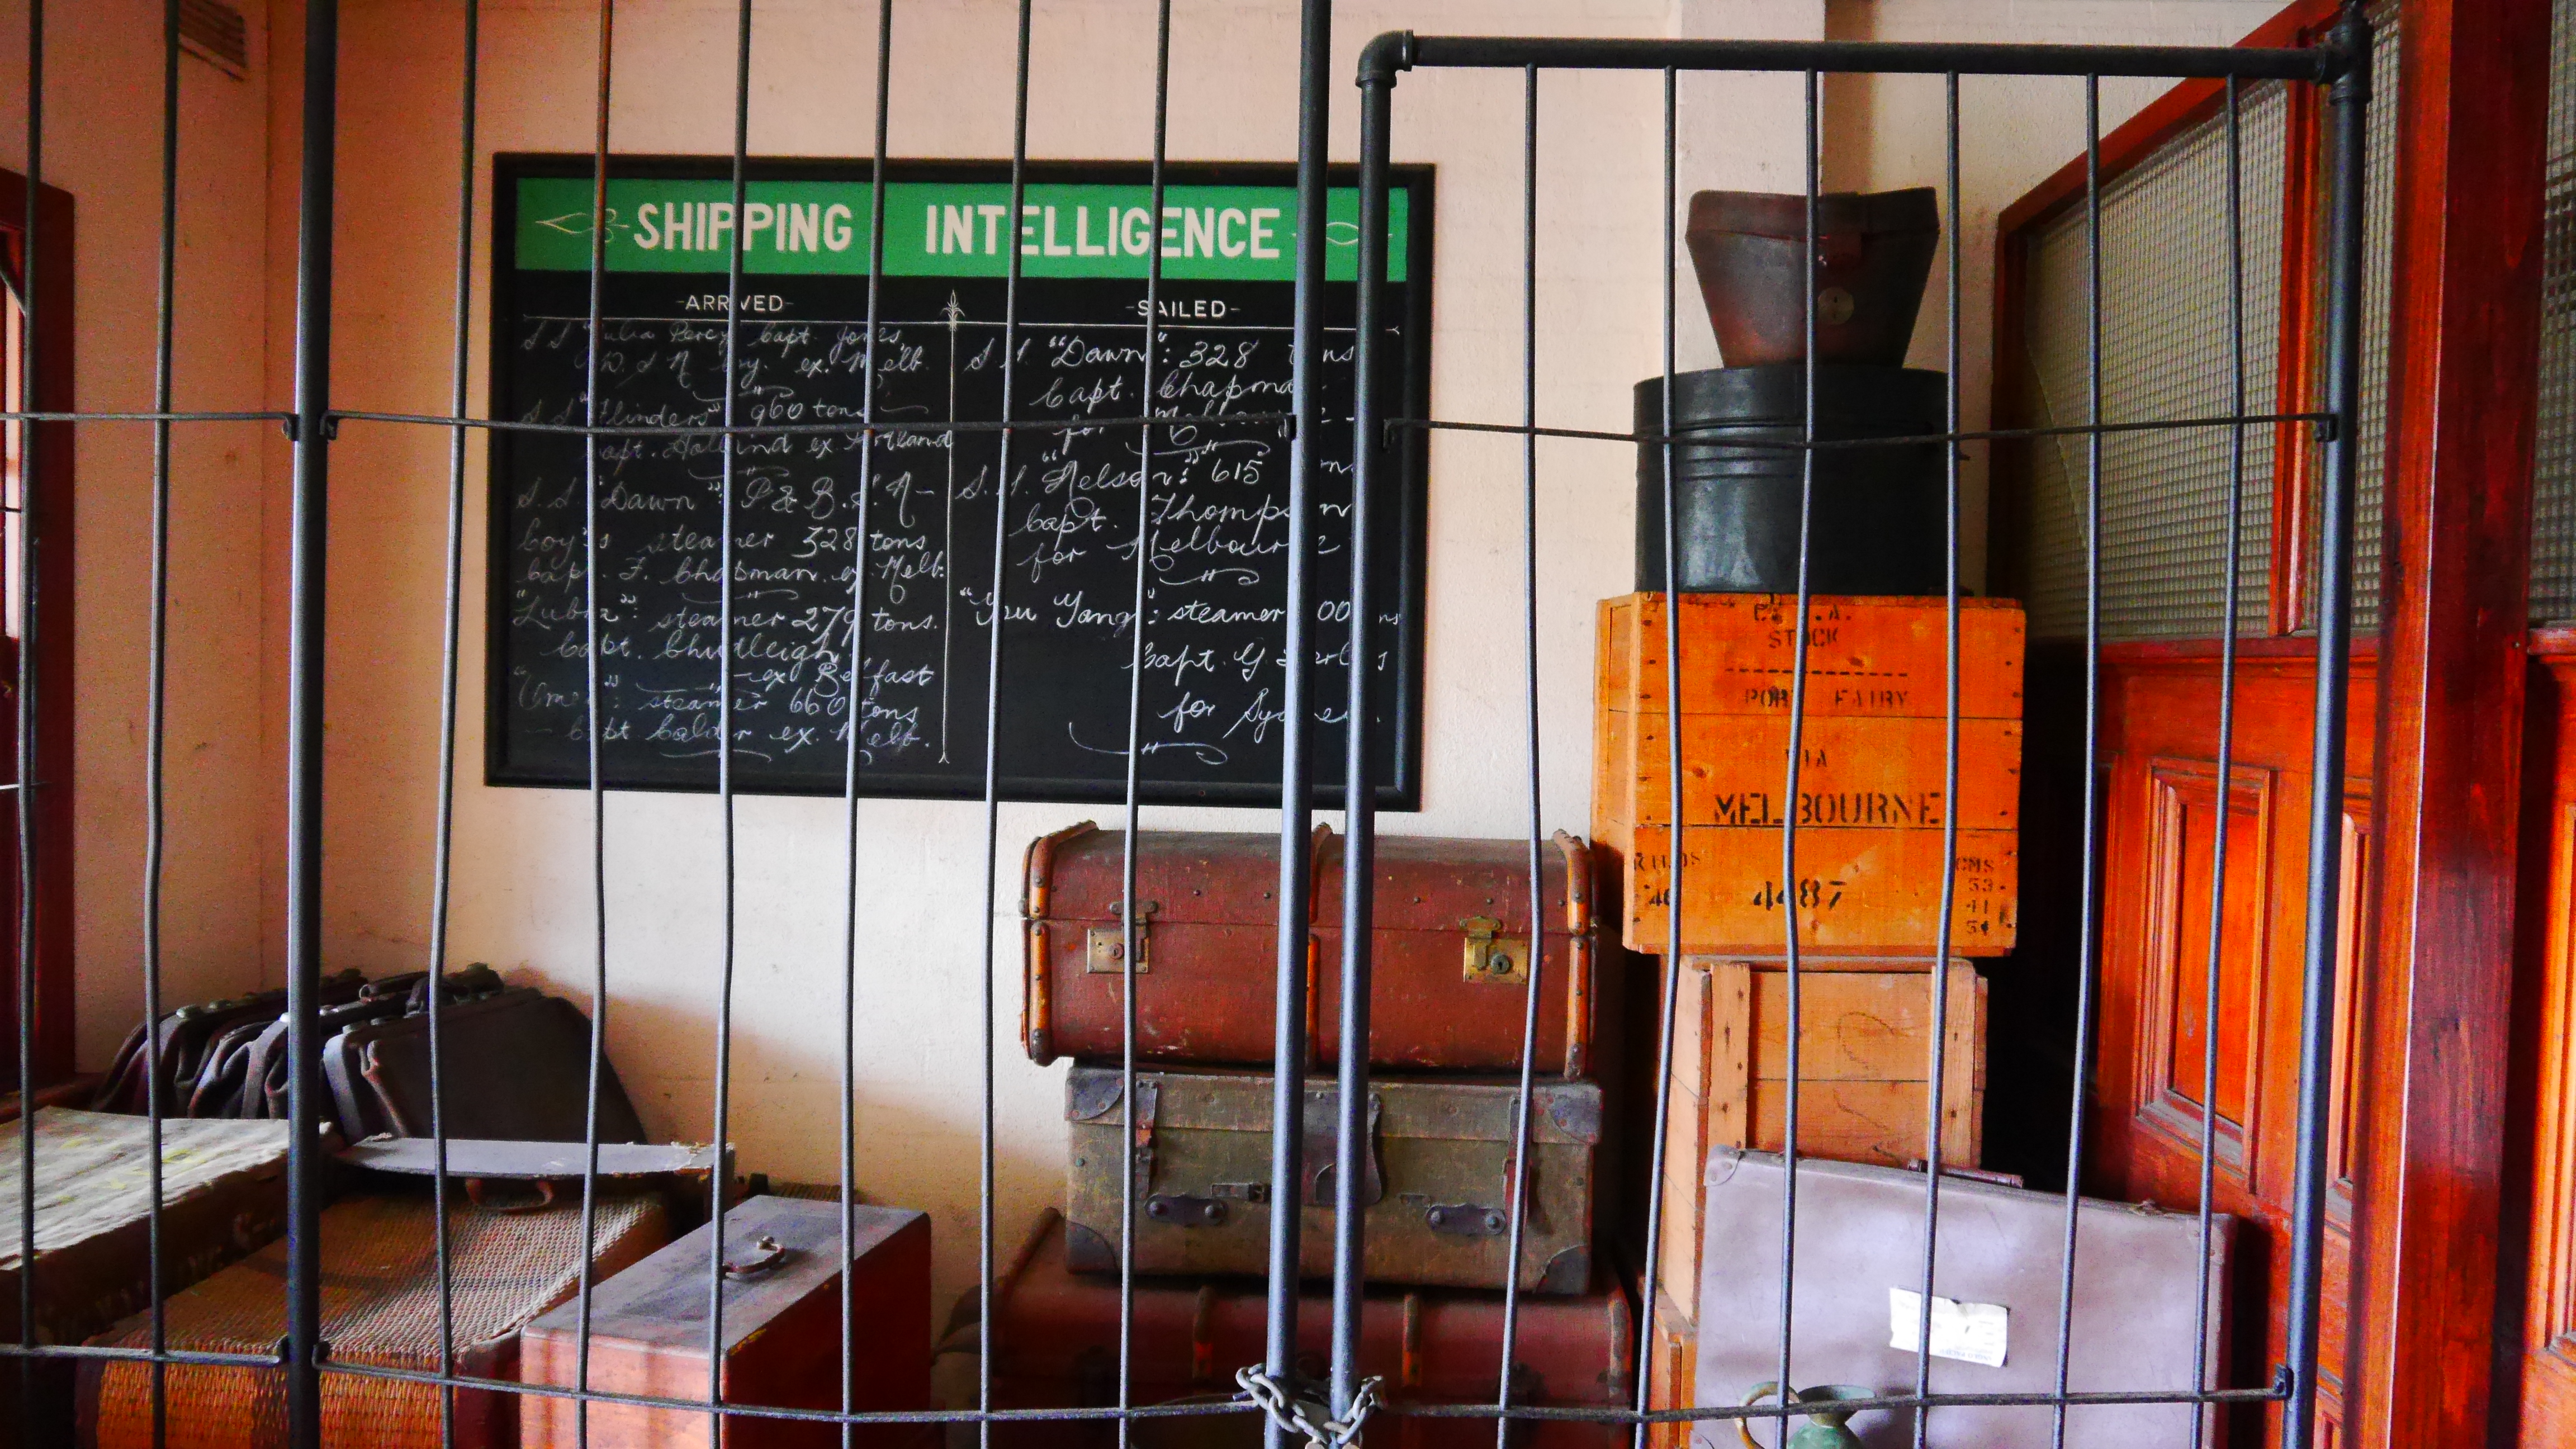 SHIPPING INTELLIGENCE
-ARRIVED-
S.S. "Julia Percy Capt. Jones,
W. S N Coy. ex. Melb.
S.S "Flinders" 960 tons
Capt. Holland ex Portland
S.S. "Dawn": P. & B. S. N-
Coy's steamer 328 tons
Capt. F. Chapman. ex. Melb.
"Lubra": steamer 279 tons.
Capt. Chudleigh,
ex Belfast
steamer 660 tons
Capt. Calder ex. Melb.
-SAILED-
S.S. "Dawn": 328 tons
Capt. Chapman
for Melbourne
S.S. "Nelson": 615 tons
Capt. Thompson
for Melbourne
"You Yangs": steamer
Capt. G.
for Sydney.
STOCK
PORT FAIRY
VIA
MELBOURNE
KILOS
CMS
53
4487
41
54